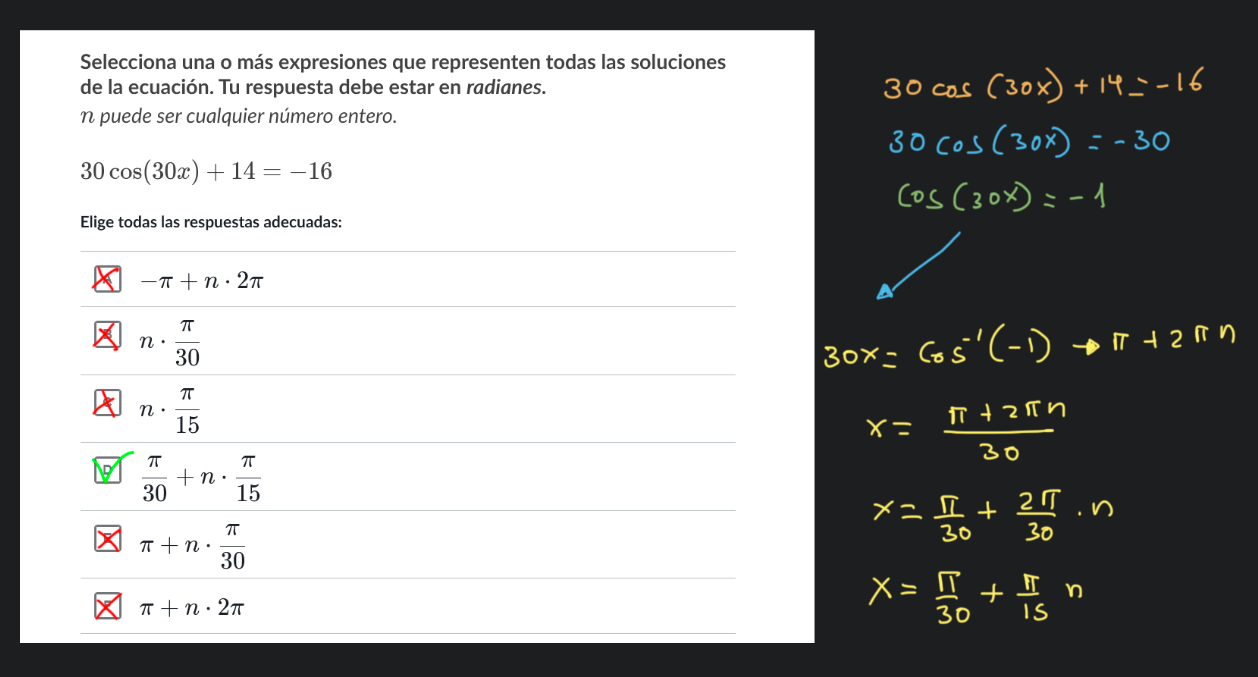 Selecciona una o más expresiones que representen todas las soluciones
de la ecuación. Tu respuesta debe estar en radianes.
n puede ser cualquier número entero.
30 cos(30x) + 14 = −16
Elige todas las respuestas adecuadas:
A −π + n · 2π
B n · π/30
C n · π/15
D π/30 + n · π/15
E π + n · π/30
π + n · 2π
30 cos (30x) + 14 = -16
30 cos (30x) = -30
cos (30x) = -1
30x = cos⁻¹(-1) → π + 2πn
x = π + 2πn / 30
x = π/30 + 2π/30 . n
x = π/30 + π/15 n